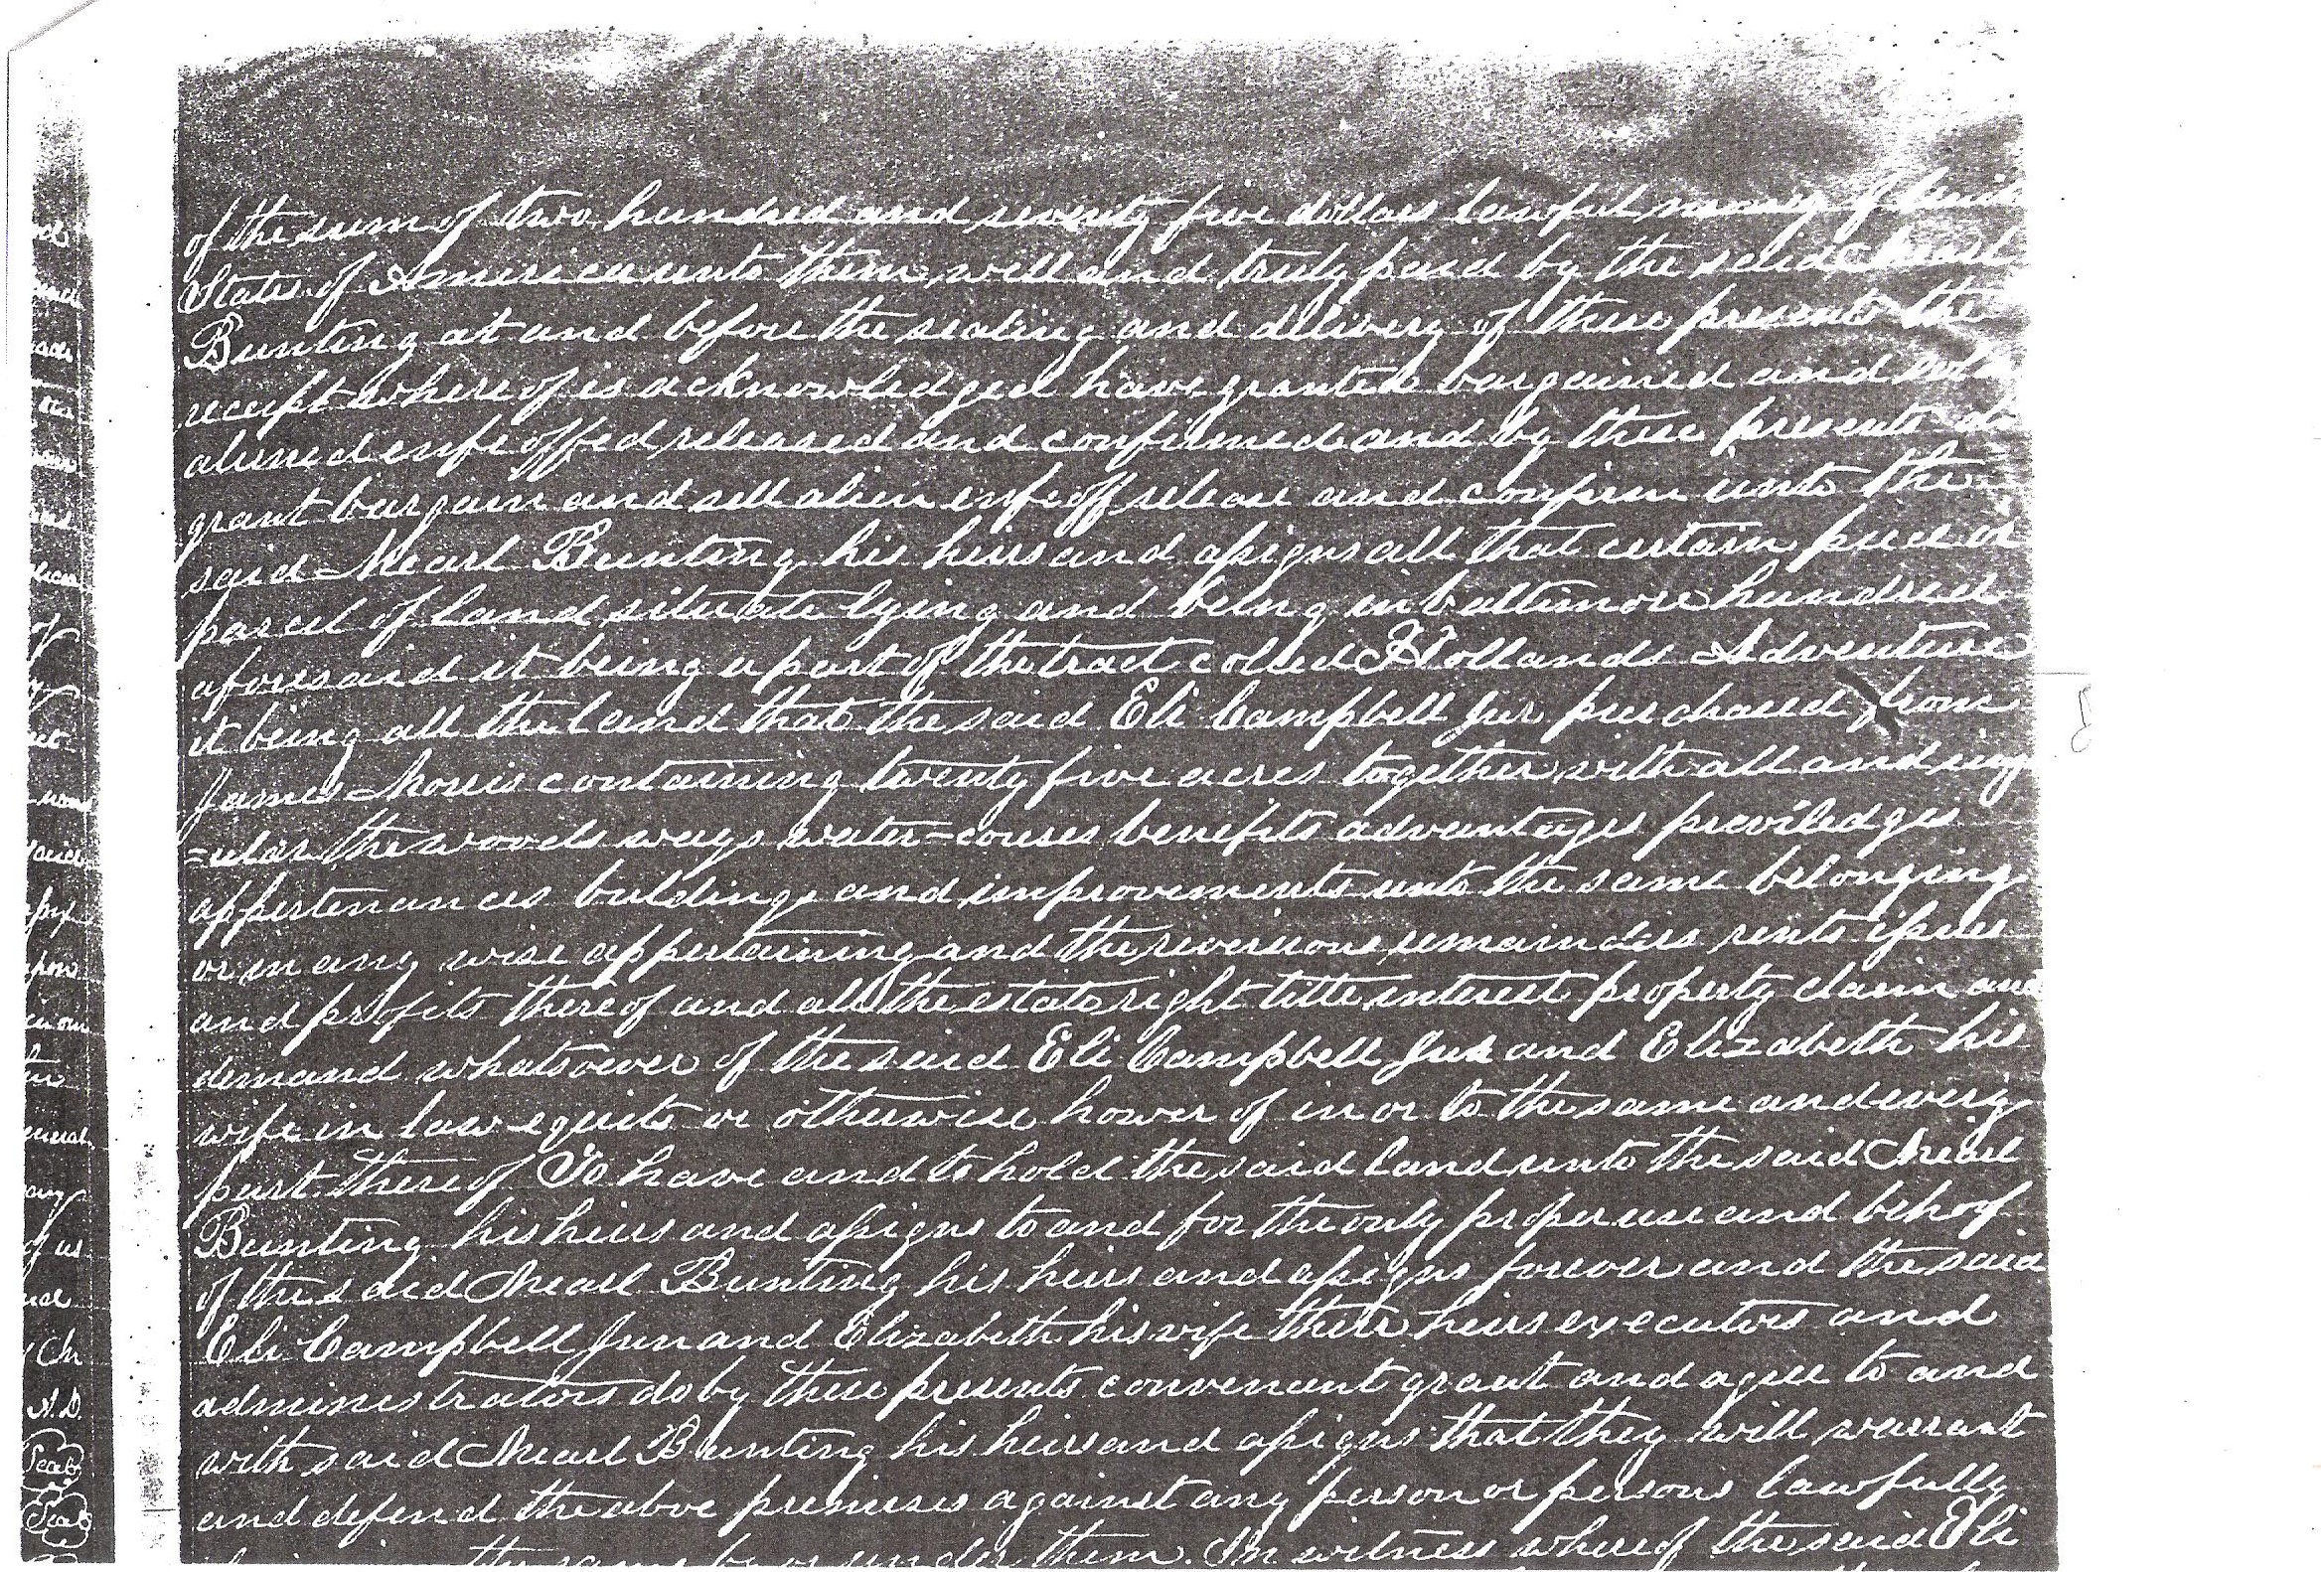 of the sum of two hundred and seventy five dollars lawful money of
States of America unto them well and truly paid by the said Nearl
Bunting at and before the sealing and delivery of these presents the
receipt whereof is acknowledged have granted bargained and sold
aliened enfeoffed released and confirmed and by these presents do
grant bargain and sell alien enfeoff release and confirm unto the
said Nearl Bunting his heirs and assigns all that certain piece or
parcel of land situate lying and being in baltimore hundred
aforesaid it being a part of the tract colled Hollands Adventure
it being all the land that the said Eli Campbell Jur purchased from
James Morris containing twenty five acres together with all and sing
=ular the woods ways water=courses benefits advantages priviledges
appertenances buldings and improvements unto the same belonging
or in any wise appertaining and the reversions remainders rents issues
and profits thereof and all the estate right title interest property claim and
demand whatsoever of the said Eli Campbell Jur and Elizabeth his
wife in law equity or otherwise however of in or to the same and every
part there of To have and to hold the said land unto the said Nearl
Bunting his heirs and assigns to and for the only proper use and behoof
of the said Nearl Bunting his heirs and assigns forever and the said
Eli Campbell Jun and Elizabeth his wife their heirs executors and
administrators do by these presents convenant grant and agree to and
with said Nearl Bunting his heirs and assigns that they will warrant
and defend the above premises against any person or persons lawfully
the same by or under them. In witness whereof the said Eli
A.D.
Seal
Seal